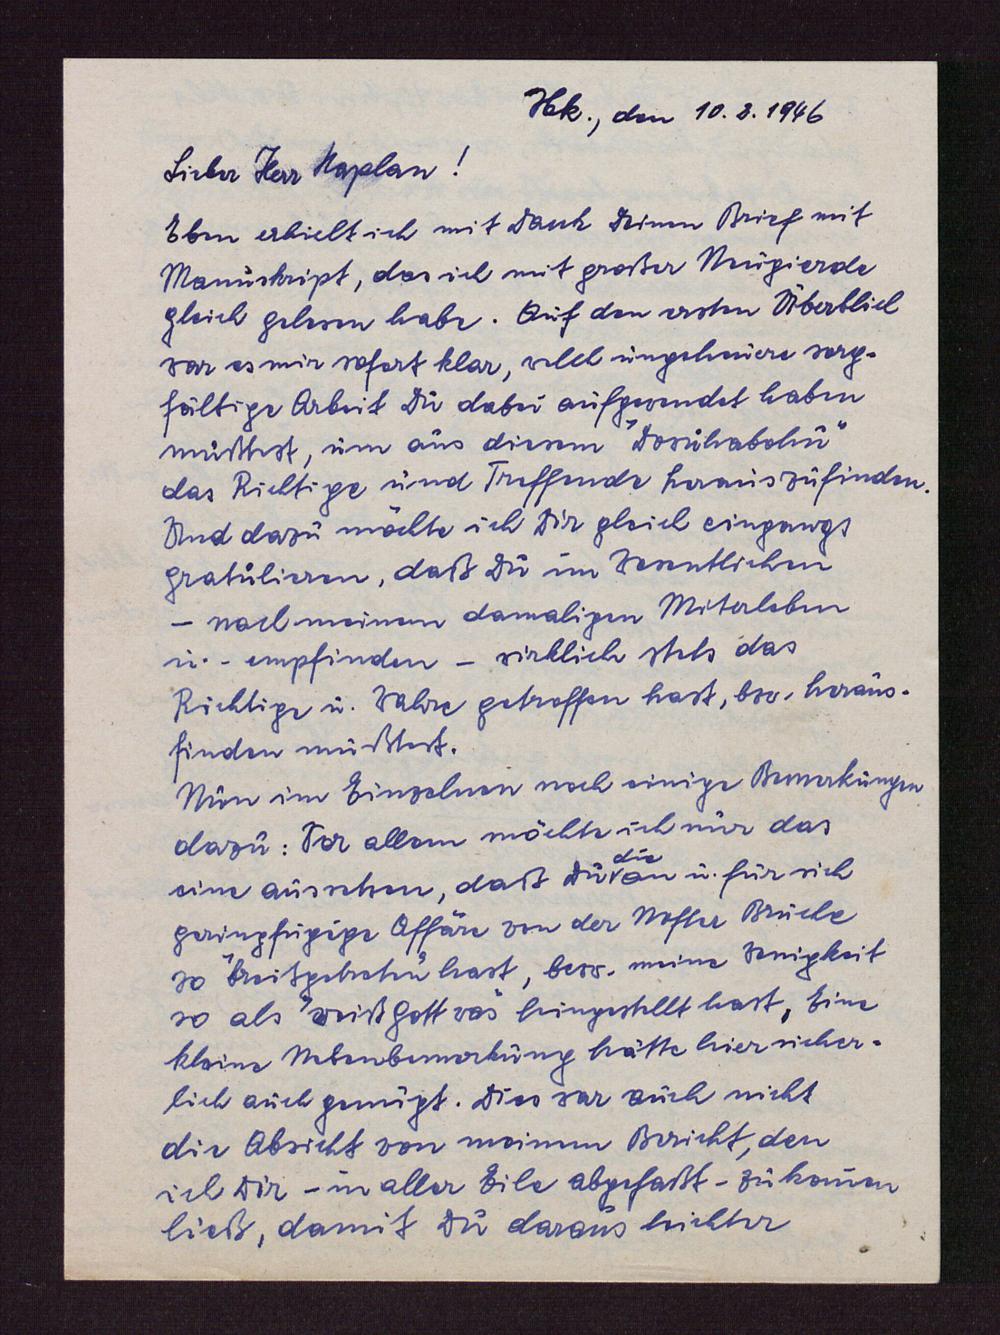 Hbk., den 10.2.1946
Lieber Herr Kaplan!
Eben erhielt ich mit Dank Deinen Brief mit
Manuskript, das ich mit großer Neugierde
gleich gelesen habe. Auf den ersten Überblick
war es mir sofort klar, welch ungeheuere sorg-
fältige Arbeit Du dabei aufgewendet haben
mußtest, um aus diesem "Dosuhabohu"
das Richtige und Treffende herauszufinden.
Und dazu möchte ich Dir gleich eingangs
gratulieren, daß Du im Wesentlichen
– nach meinem damaligen Miterleben
u. - empfinden – wirklich stets das
Richtige u. Wahre getroffen hast, bzw. heraus-
finden mußtest.
Nun im Einzelnen noch einige Bemerkungen
dazu: Vor allem möchte ich nur das
eine aussetzen, daß Du die an u. für sich
geringfügige Affäre von der Brücke
so "breitgetreten" hast, bezw. meine Wenigkeit
so als "weiß Gott was" hingestellt hast, Eine
kleine Nebenbemerkung hätte hier sicher-
lich auch genügt. Dies war auch nicht
die Absicht von meinem Bericht, den
ich Dir – in aller Eile abgefaßt – zukommen
ließ, damit Du daraus leichter